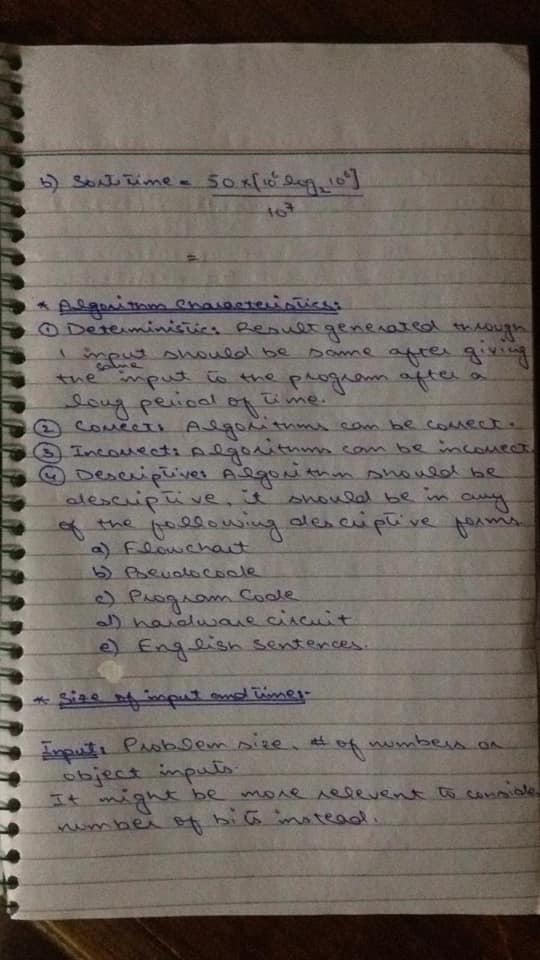 b) Sort time = 50 x [10⁶ log₂ 10⁶]
10⁷
=
* Algorithm Characteristics:
① Deterministic: Result generated through
1 input should be same after giving
the same input to the program after a
long period of time.
② Correct: Algorithms can be correct.
③ Incorrect: Algorithms can be incorrect.
④ Descriptive: Algorithm should be
descriptive, it should be in any
of the following descriptive forms
a) Flowchart
b) Pseudocode
c) Program Code
d) hardware circuit
e) English sentences.
* Size of input and time:-
Input: Problem size, # of numbers or
object inputs.
It might be more relevent to conside
number of bits instead.